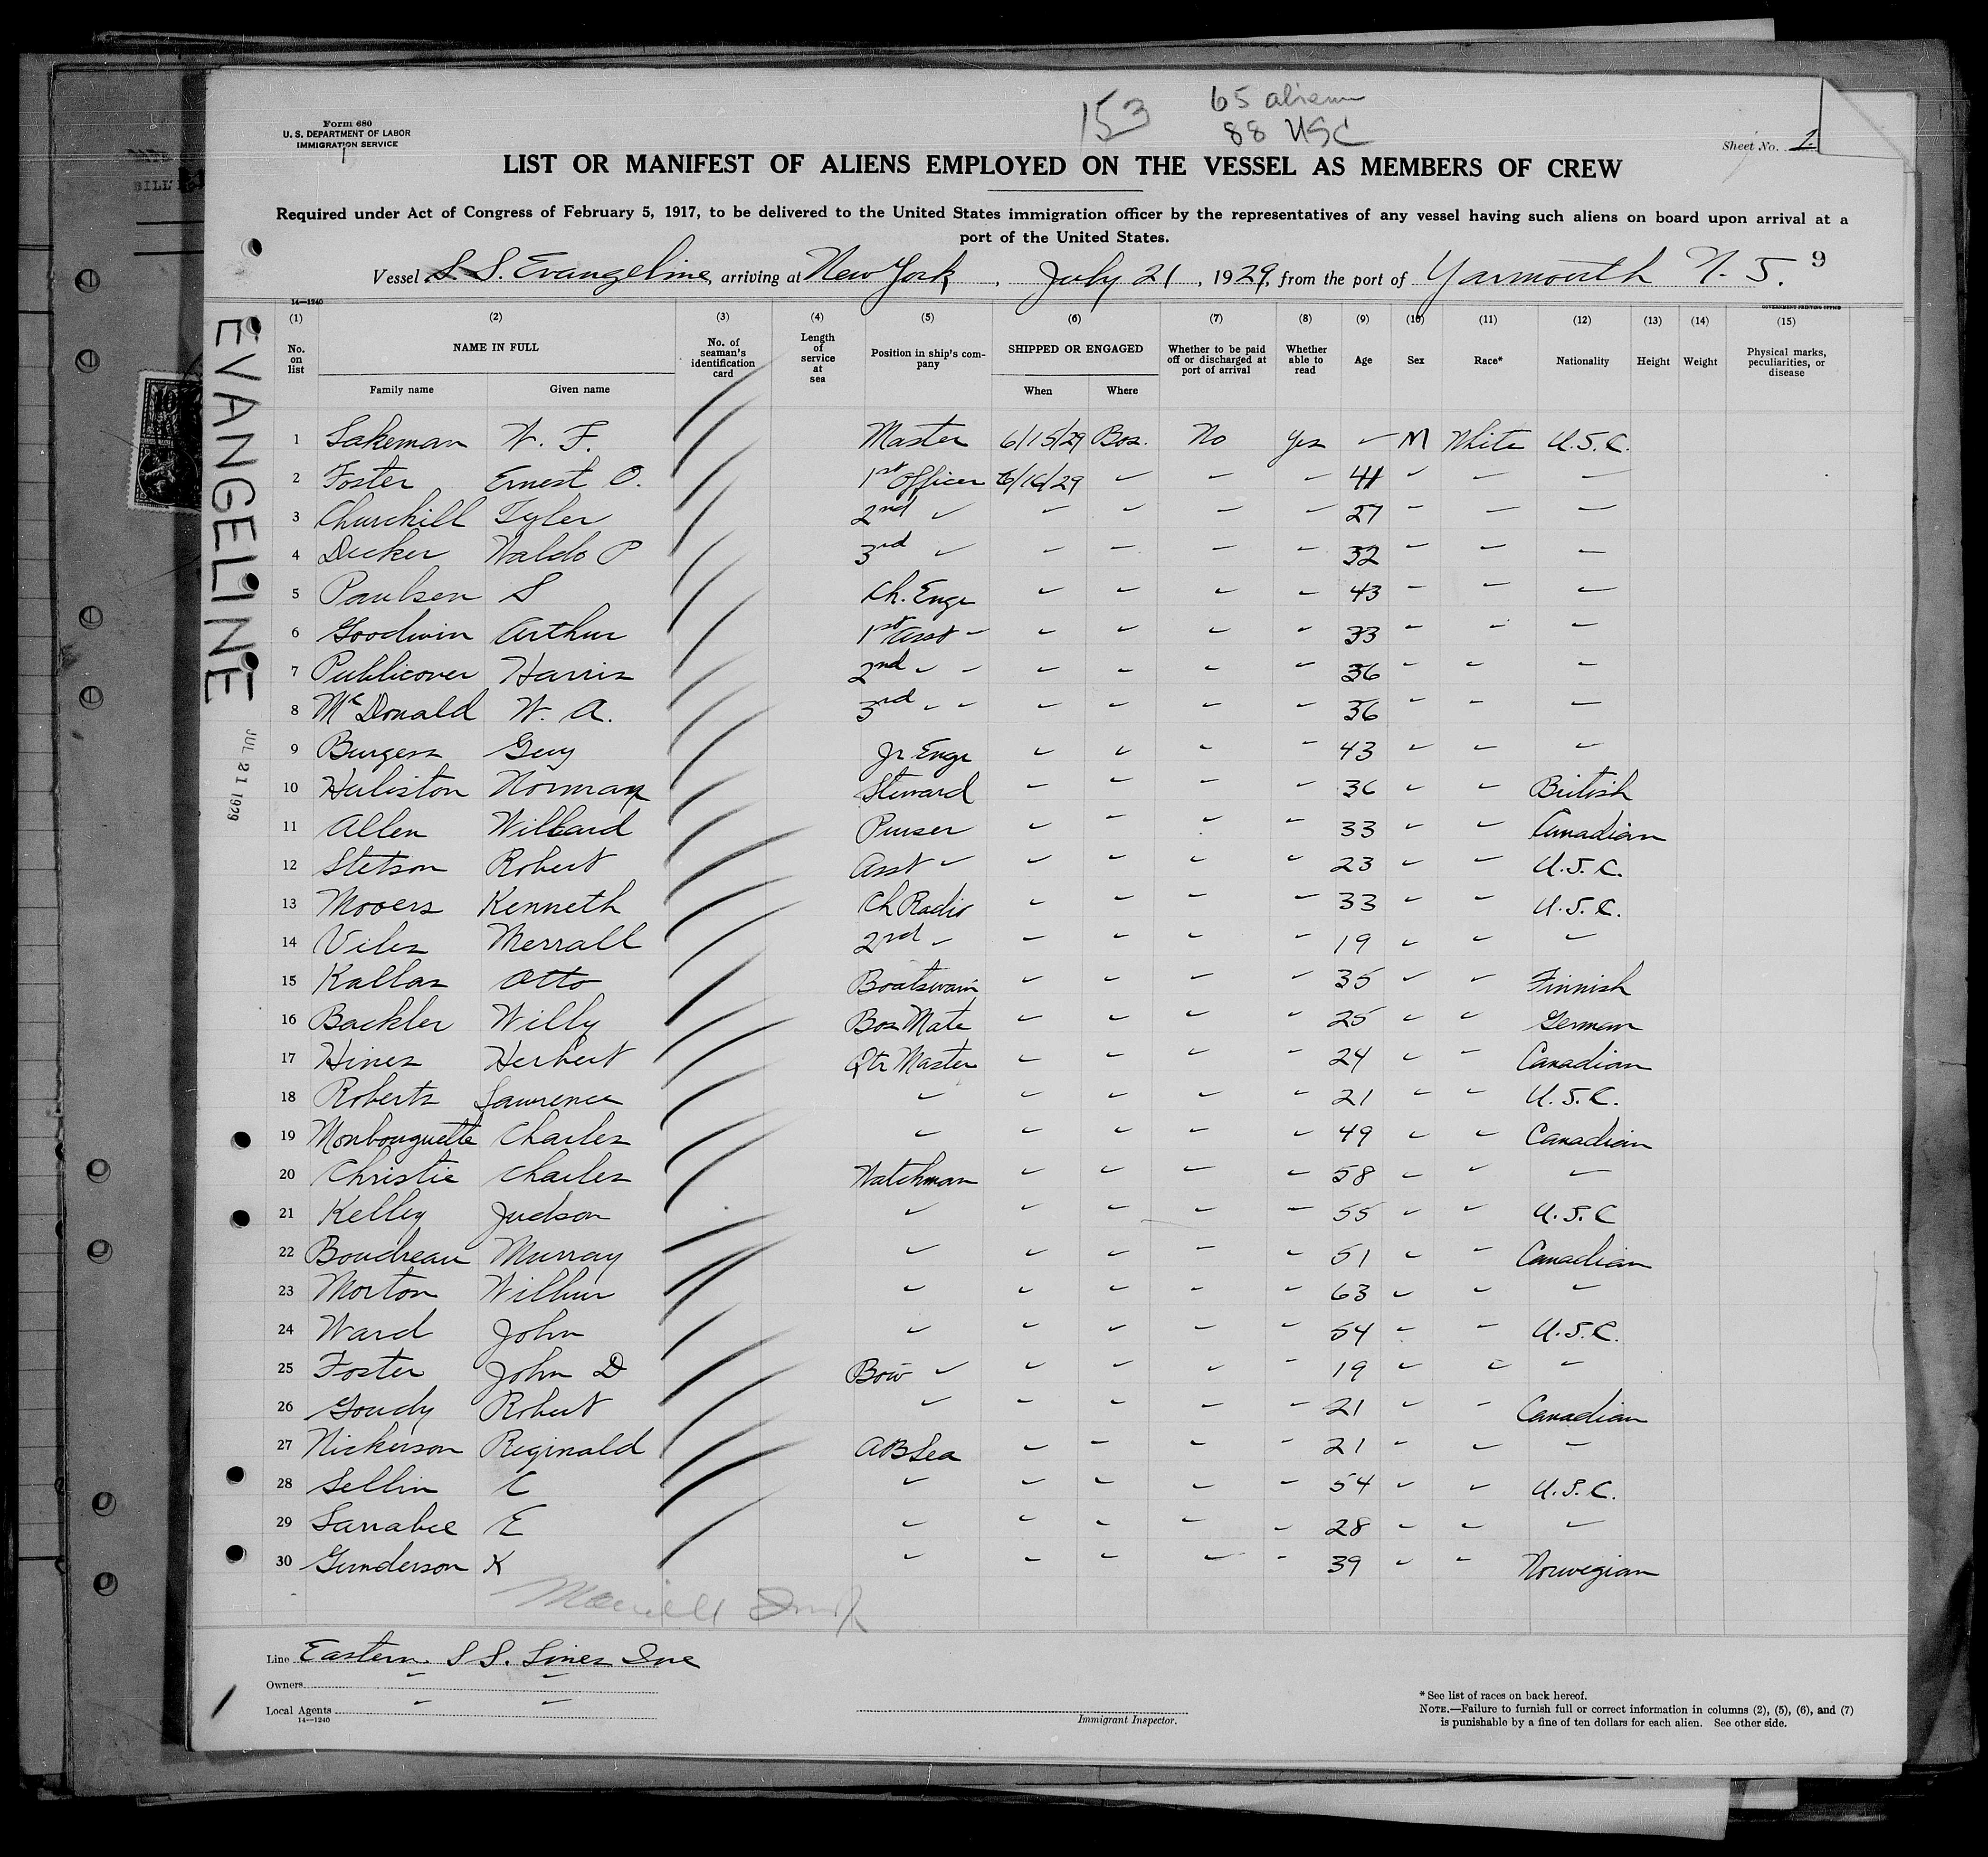 153 65 aliens
88 USC
Form 680
U. S. DEPARTMENT OF LABOR
IMMIGRATION SERVICE
Sheet No. 1
LIST OR MANIFEST OF ALIENS EMPLOYED ON THE VESSEL AS MEMBERS OF CREW
Required under Act of Congress of February 5, 1917, to be delivered to the United States immigration officer by the representatives of any vessel having such aliens on board upon arrival at a
port of the United States.
Vessel S.S. Evangeline, arriving at New York, July 21, 1929, from the port of Yarmouth N.S. 9
14—1240
GOVERNMENT PRINTING OFFICE
EVANGELINE
JUL 21 1929
(1) (2) (3) (4) (5) (6) (7) (8) (9) (10) (11) (12) (13) (14) (15)
No. on list NAME IN FULL No. of seaman's identification card Length of service at sea Position in ship's company SHIPPED OR ENGAGED Whether to be paid off or discharged at port of arrival Whether able to read Age Sex Race* Nationality Height Weight Physical marks, peculiarities, or disease
Family name Given name When Where
1 Lakeman W. F. Master 6/15/29 Bos. No Yes ✓ M White U.S.C.
2 Foster Ernest O. 1st Officer 6/16/29 " " " 41 " " "
3 Churchill Tyler 2nd " " " " " 27 " " "
4 Decker Waldo P 3rd " " " " " 32 " " "
5 Paulsen S Ch. Engr " " " " 43 " " "
6 Goodwin Arthur 1st Asst " " " " " 33 " " "
7 Publicover Harris 2nd " " " " " " 36 " " "
8 McDonald W. A. 3rd " " " " " " 36 " " "
9 Burgess Guy Jr Engr " " " " 43 " " "
10 Huliston Norman Steward " " " " 36 " " British
11 Allen Willard Purser " " " " 33 " " Canadian
12 Stetson Robert Asst " " " " " 23 " " U.S.C.
13 Mooers Kenneth Ch Radio " " " " 33 " " U.S.C.
14 Viles Merrall 2nd " " " " " 19 " " "
15 Kallas Otto Boatswain " " " " 35 " " Finnish
16 Backler Willy Bos Mate " " " " 25 " " German
17 Hines Herbert Qtr Master " " " " 24 " " Canadian
18 Roberts Lawrence " " " " " 21 " " U.S.C.
19 Monbouquette Charles " " " " " 49 " " Canadian
20 Christie Charles Watchman " " " " 58 " " "
21 Kelley Judson " " " " " 55 " " U.S.C
22 Boudreau Murray " " " " " 51 " " Canadian
23 Morton Wilbur " " " " " 63 " " "
24 Ward John " " " " " 54 " " U.S.C.
25 Foster John D Bow " " " " " 19 " " "
26 Goudy Robert " " " " " 21 " " Canadian
27 Nickerson Reginald AB Sea " " " " 21 " " "
28 Sellin C " " " " " 54 " " U.S.C.
29 Larrabee E " " " " " 28 " " "
30 Gunderson K " " " " " 39 " " Norwegian
Line Eastern S S. Lines Inc
Owners " "
Local Agents " "
14—1240
Immigrant Inspector.
* See list of races on back hereof.
NOTE.—Failure to furnish full or correct information in columns (2), (5), (6), and (7)
is punishable by a fine of ten dollars for each alien. See other side.